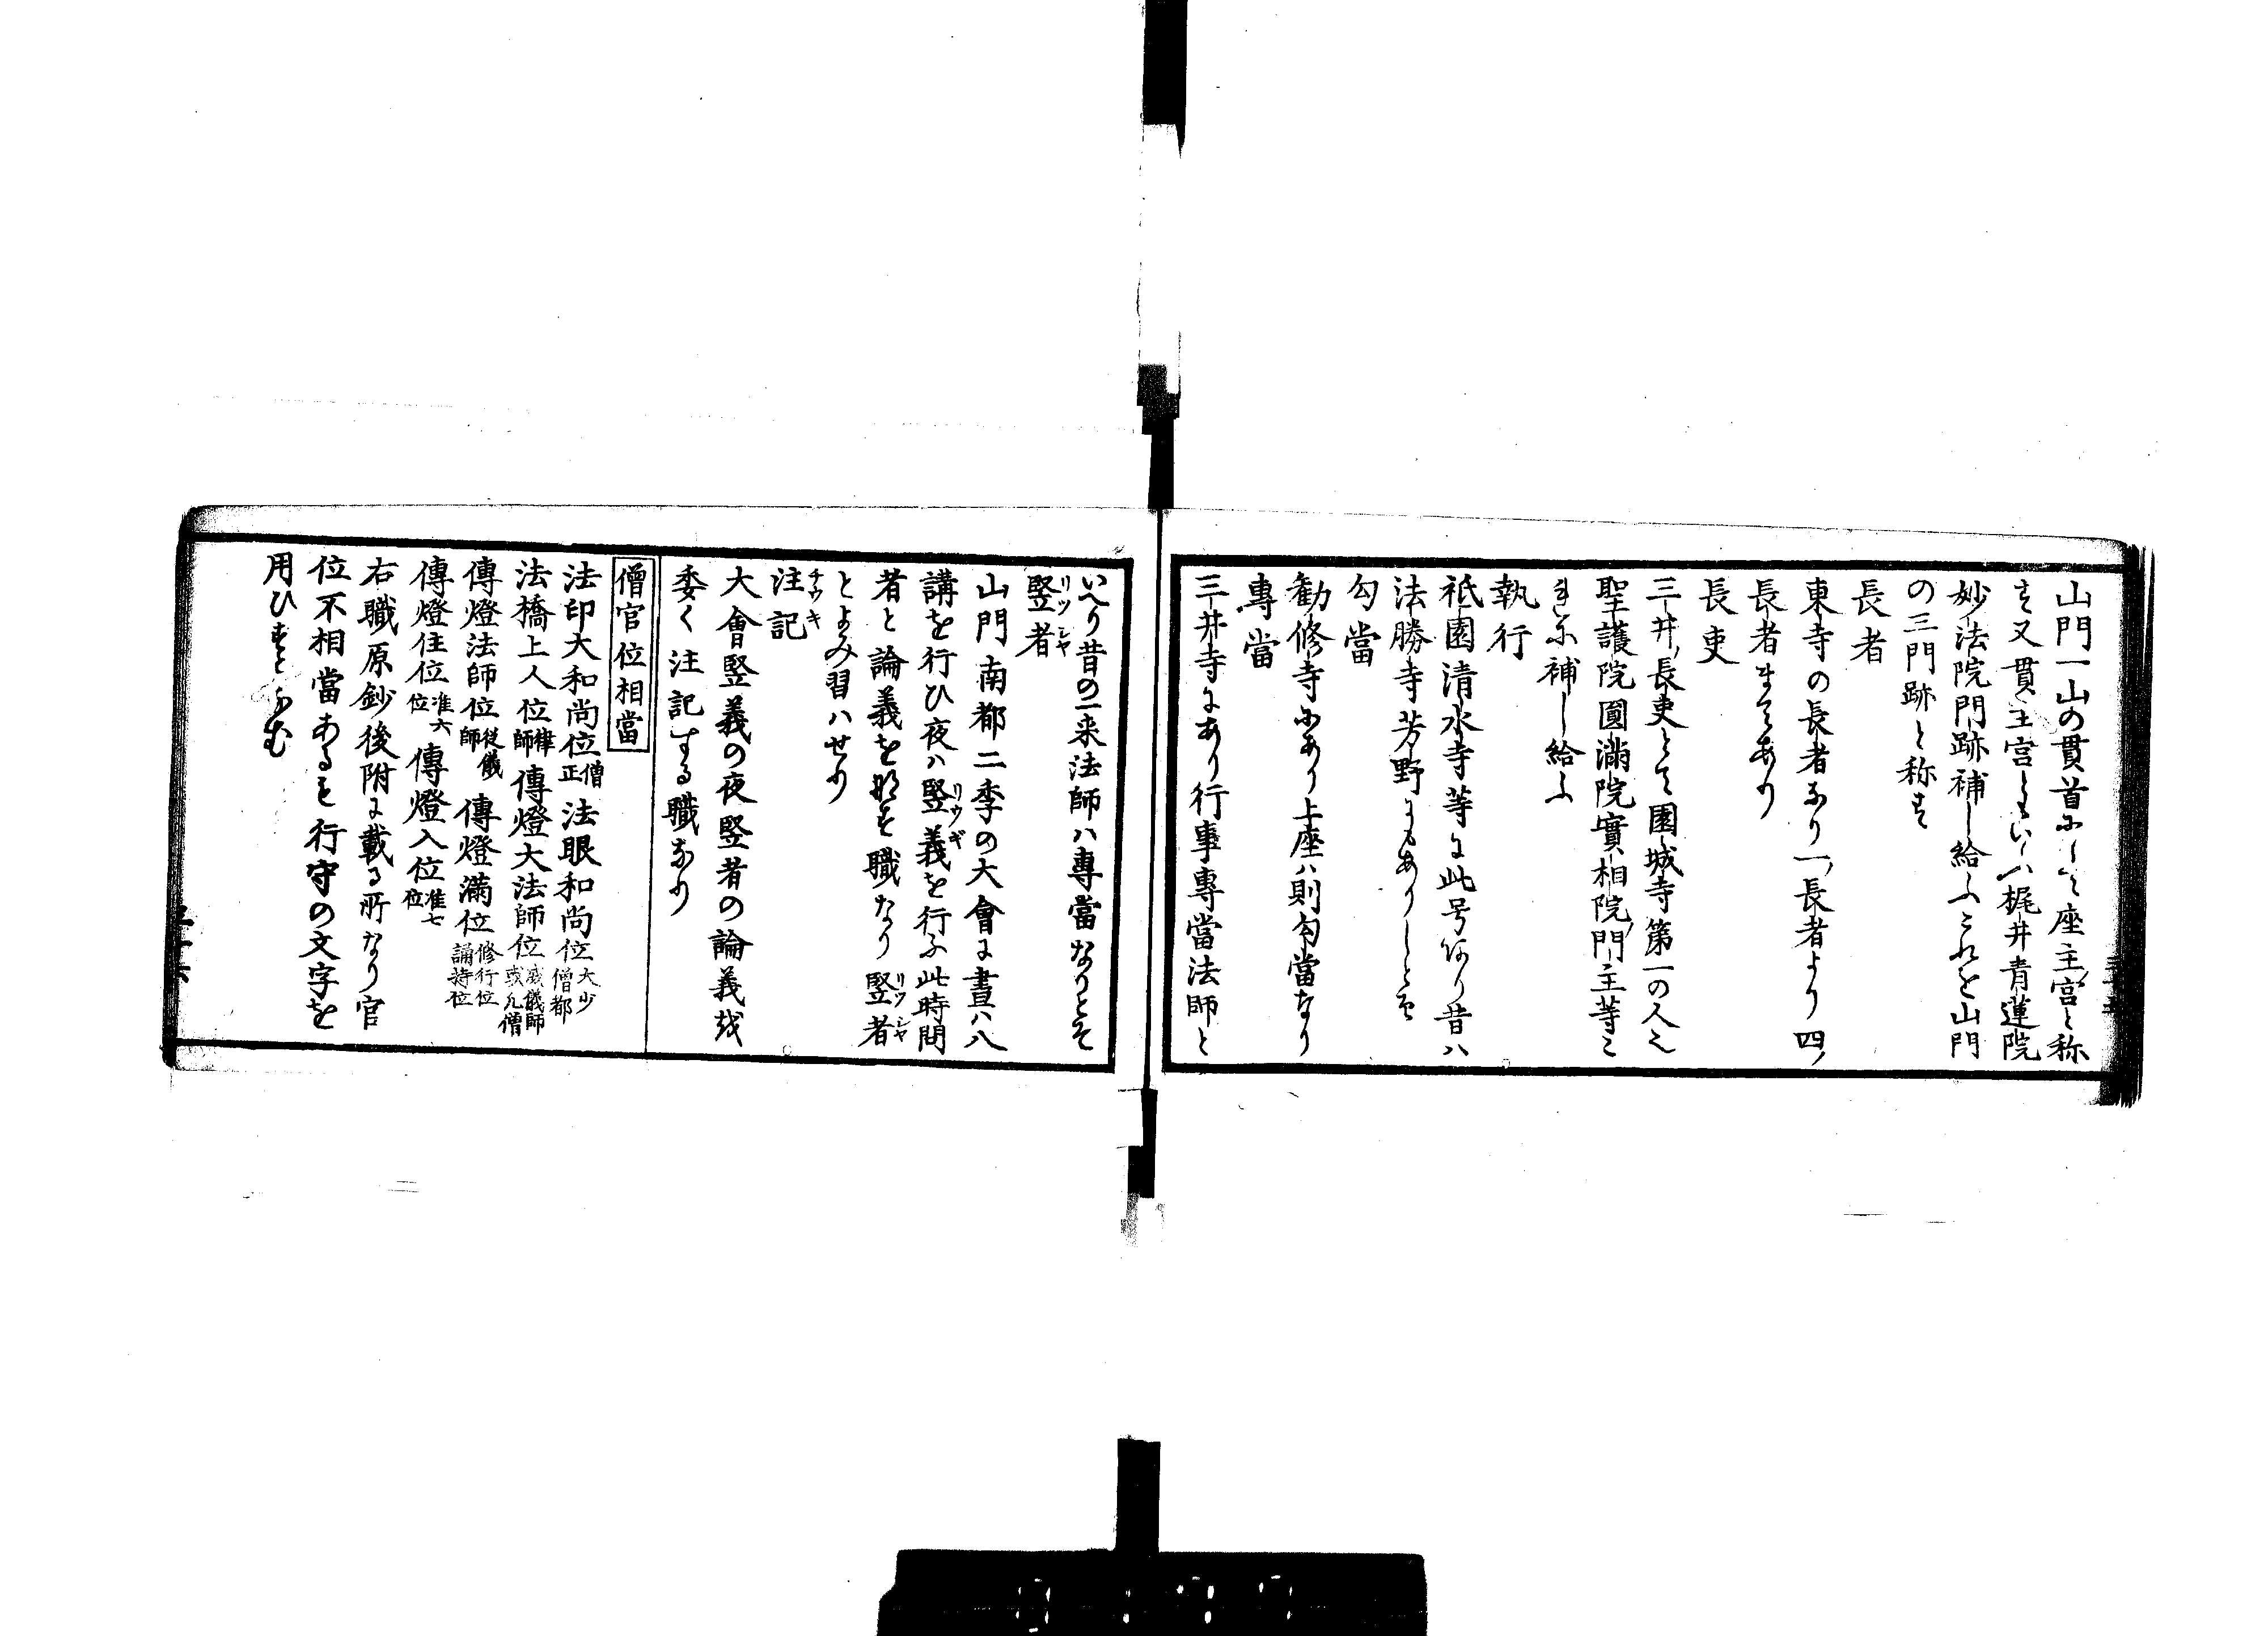 山門一山の貫首にして座主ノ宮と称
す又貫主宮ともいへハ梶井青蓮院
妙法院門跡補し給ふこれを山門
の三門跡と称す
長者
東寺の長者なり一ノ長者より四ノ
長者まてあり
長吏
三井ノ長吏とて園城寺第一の人也
聖護院圓滿院實相院ノ門主等こ
れに補し給ふ
執行
祗園清水寺等に此号あり昔ハ
法勝寺芳野にもありしとそ
勾當
勸修寺にあり上座ハ則勾當なり
專當
三井寺にあり行事專當法師と
いへり昔の一来法師ハ專當なりとそ
竪者リツシヤ
山門南都二季の大會に晝ハ八
講を行ひ夜ハ竪義リウギを行ふ此時問
者と論義をなす職なり竪者リツシヤ
とよみ習ハせり
注記チウキ
大會竪義の夜竪者の論義を
委く注記する職なり
僧官位相當
法印大和尚位僧正 法眼和尚位大少僧都
法橋上人位律師 傳燈大法師位威儀師或凡僧
傳燈法師位從儀師 傳燈滿位修行位誦持位
傳燈住位准六位 傳燈入位准七位
右職原鈔後附に載る所なり官
位不相當あるも行守の文字を
用ひす